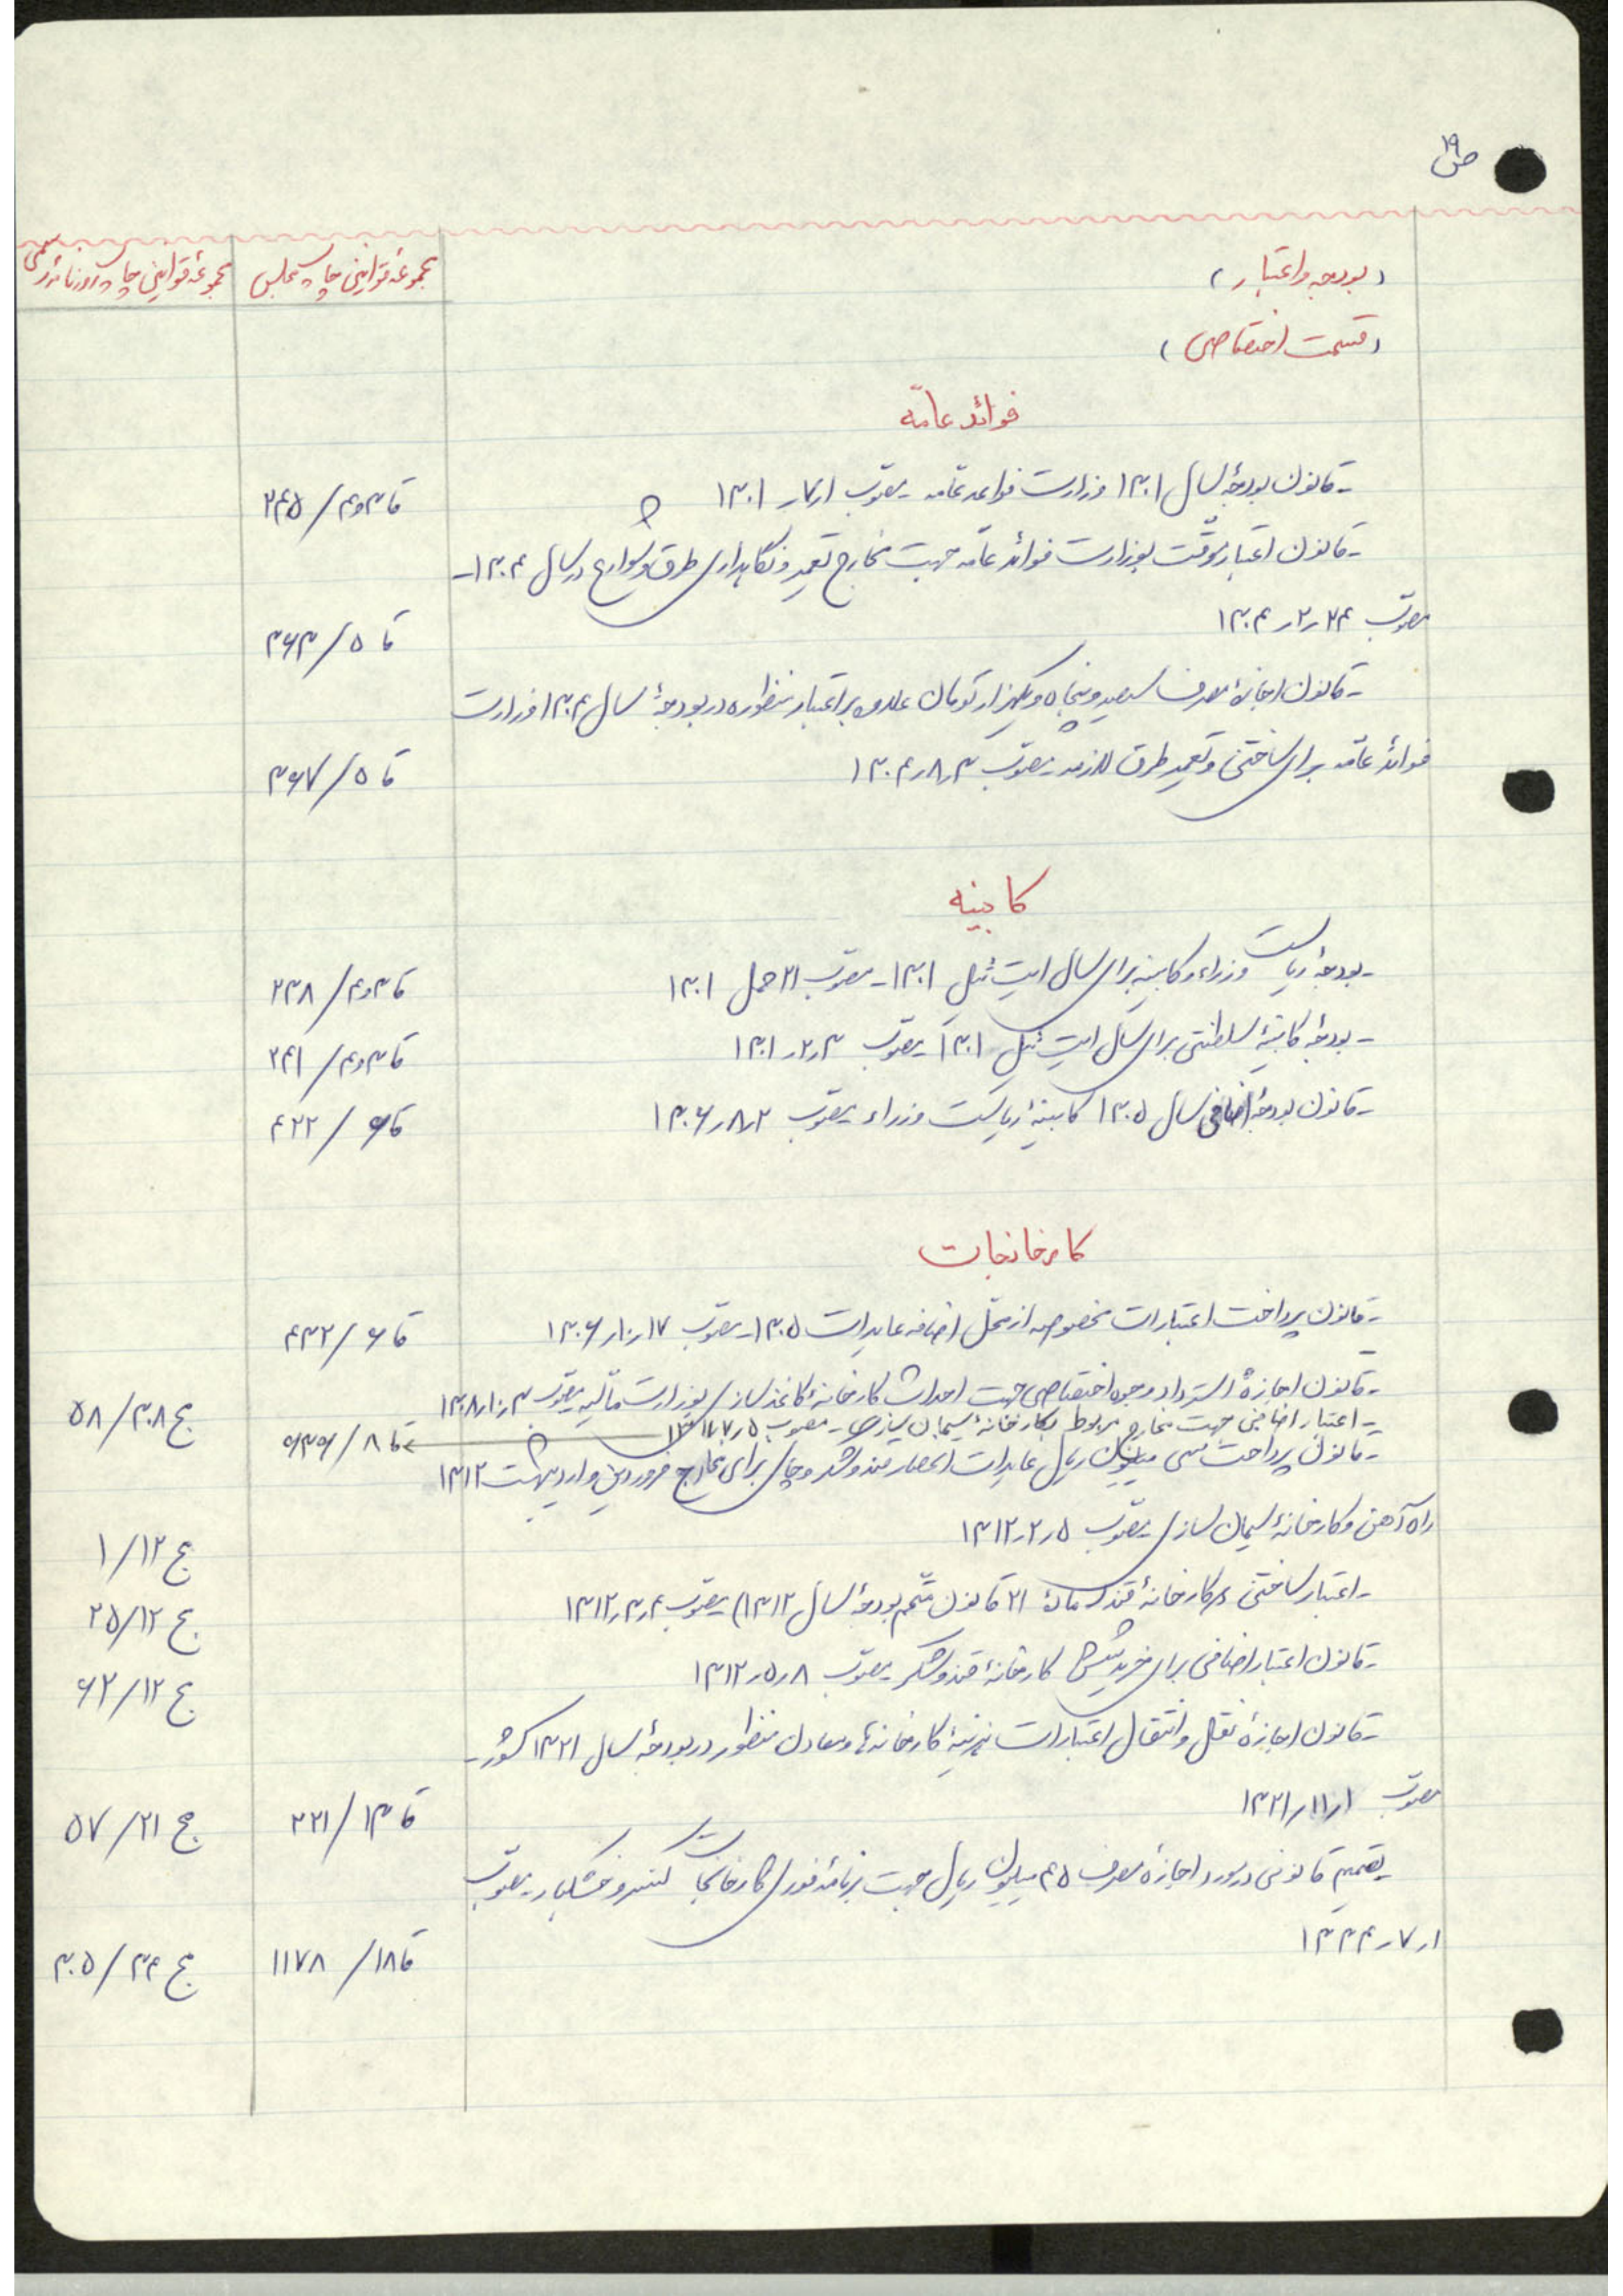 ص ۱۹
(بودجه و اعتبار) مجموعهٔ قوانین چاپ مجلس مجموعهٔ قوانین چاپ روزنامهٔ رسمی
(قسمت اختصاصی)
فوائد عامّه
- قانون بودجهٔ سال ۱۳۰۱ وزارت فواعد عامه - مصوّب ۱ر۷ر۱۳۰۱ قا ۳و۴/ ۲۴۵
- قانون اعتبار موقّت بوزارت فوائد عامّه جهت مخارج تعمیر و نگاهداری طرق و شوارع در سال ۱۳۰۴ -
مصوّب ۲۴ر۲ر۱۳۰۴ قا ۵/ ۳۶۳
- قانون اجازهٔ مصرف سیصد و پنجاه و یکهزار تومان علاوه بر اعتبار منظوره در بودجهٔ سال ۱۳۰۴ وزارت
فوائد عامّه برای ساختن و تعمیر طرق لازمه - مصوّب ۳ر۸ر۱۳۰۴ قا ۵/ ۳۶۷
کابینه
- بودجهٔ ریاست وزراء و کابینه برای سال ایت ئیل ۱۳۰۱ - مصوّب ۲۱ حمل ۱۳۰۱ قا ۳و۴/ ۲۳۸
- بودجهٔ کابینهٔ سلطنتی برای سال ایت ئیل ۱۳۰۱ - مصوّب ۳ر۲ر۱۳۰۱ قا ۳و۴/ ۲۴۱
- قانون بودجهٔ اضافی سال ۱۳۰۵ کابینهٔ ریاست وزراء - مصوّب ۲ر۸ر۱۳۰۶ قا ۶/ ۴۲۲
کارخانجات
- قانون پرداخت اعتبارات مخصوصه از محل اضافه عایدات ۱۳۰۵ - مصوّب ۱۷ر۱۰ر۱۳۰۶ قا ۶/ ۴۳۲
- قانون اجازهٔ استرداد وجوه اختصاصی جهت احداث کارخانهٔ کاغذسازی بوزارت مالیه - مصوّب ۳ر۱۰ر۱۳۰۸ مج ۳۰۸/ ۵۸
- اعتبار اضافی جهت مخارج مربوط بکارخانهٔ سیمان سازی - مصوب ۵ر۷ر قا ۸/
- قانون پرداخت سی میلیون ریال عایدات انحصار قند و شکر و چای برای مخارج فروردین و اردیبهشت ۱۳۱۲
راه آهن و کارخانهٔ سیمان سازی - مصوّب ۵ر۲ر۱۳۱۲ مج ۱۲/ ۱
- اعتبار ساختن کارخانهٔ قند (مادهٔ ۲۱ قانون متمم بودجهٔ سال ۱۳۱۲) - مصوّب ۴ر۳ر۱۳۱۲ مج ۱۲/ ۲۵
- قانون اعتبار اضافی برای خرید شش کارخانهٔ قند و شکر - مصوّب ۸ر۵ر۱۳۱۲ مج ۱۲/ ۶۲
- قانون اجازهٔ نقل و انتقال اعتبارات هزینهٔ کارخانه‌ها و معادن منظور در بودجهٔ سال ۱۳۲۱ کشور -
مصوّب ۱ر۱۱ر۱۳۲۱ قا ۱۳/ ۲۲۱ مج ۲۱/ ۵۷
- تصمیم قانونی در مورد اجازهٔ مصرف ۴۵ میلیون ریال جهت برنامهٔ فوری کارخانجات کنسرو و خشکبار - مصوّب
۱ر۷ر۱۳۳۴ قا ۱۸/ ۱۱۷۸ مج ۳۴/ ۳۰۵